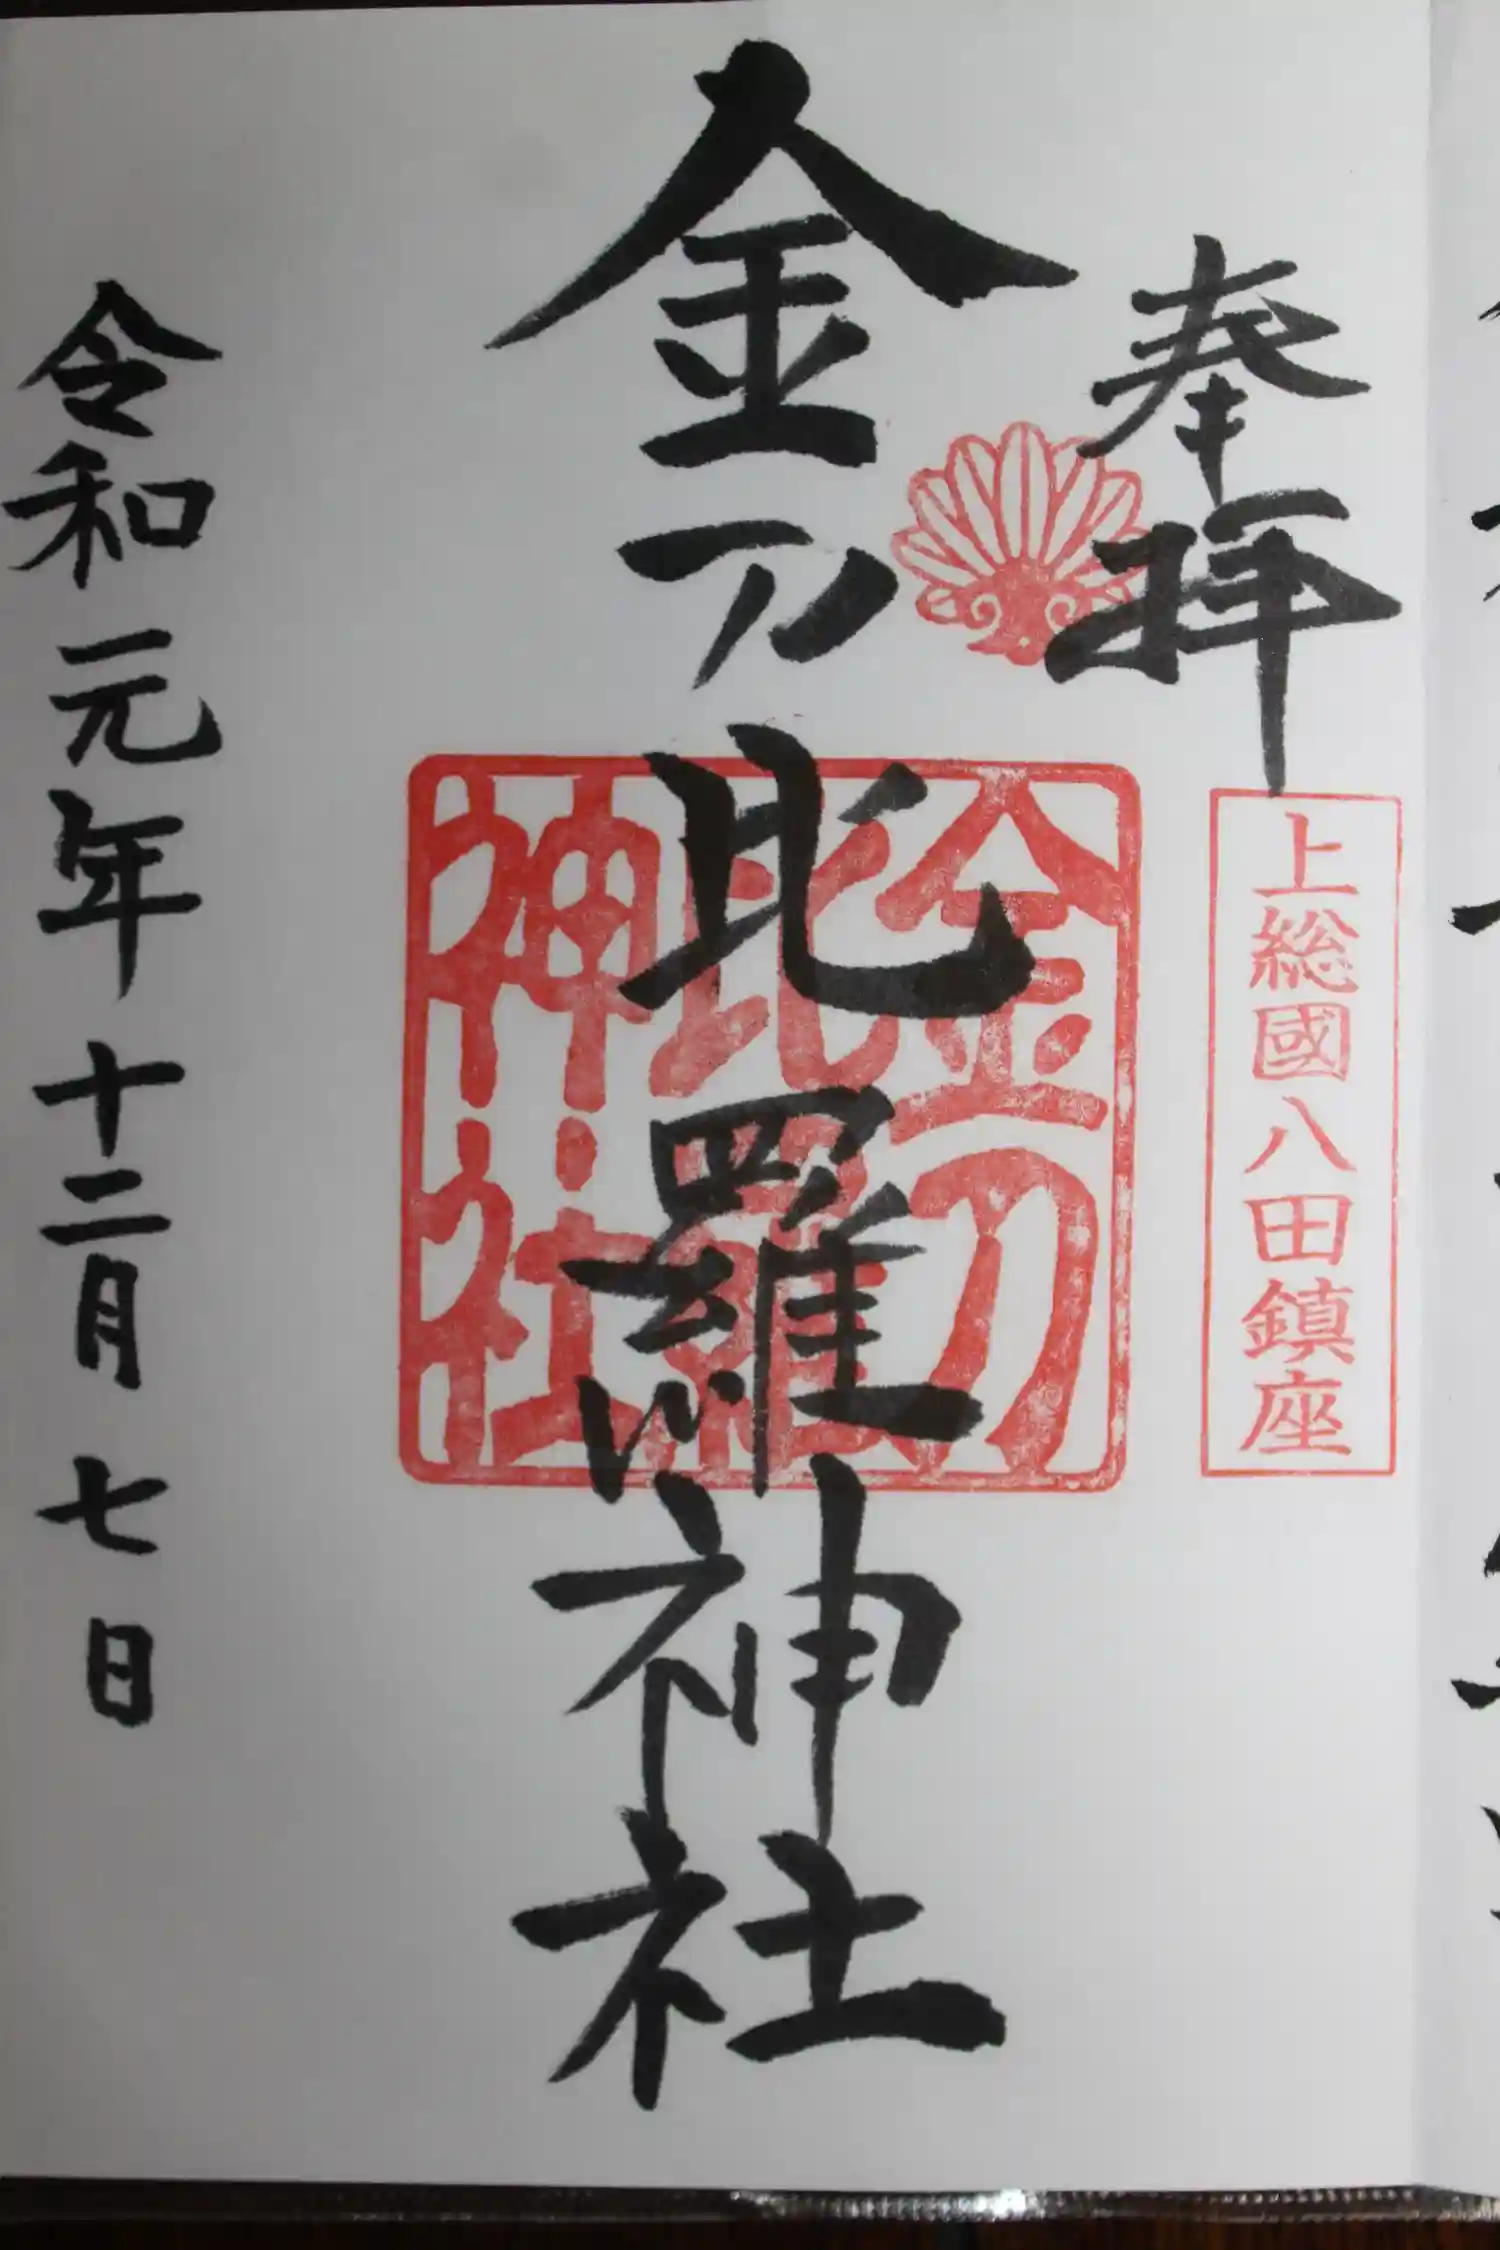 奉拝
上総國八田鎮座
金刀比羅神社
金刀
比羅
神社
令和元年十二月七日